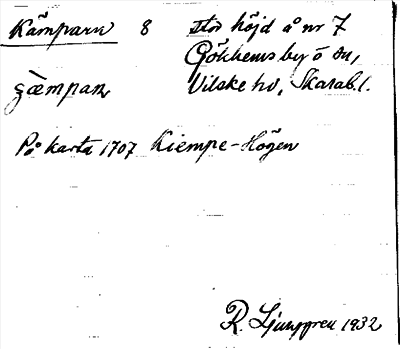 Kämparn 8 stor höjd å nr 7
Gökhems by ö sn,
gæmpan Vilske hd, Skarab.l.
På karta 1707 Kiempe-Högen
R. Ljunggren 1932